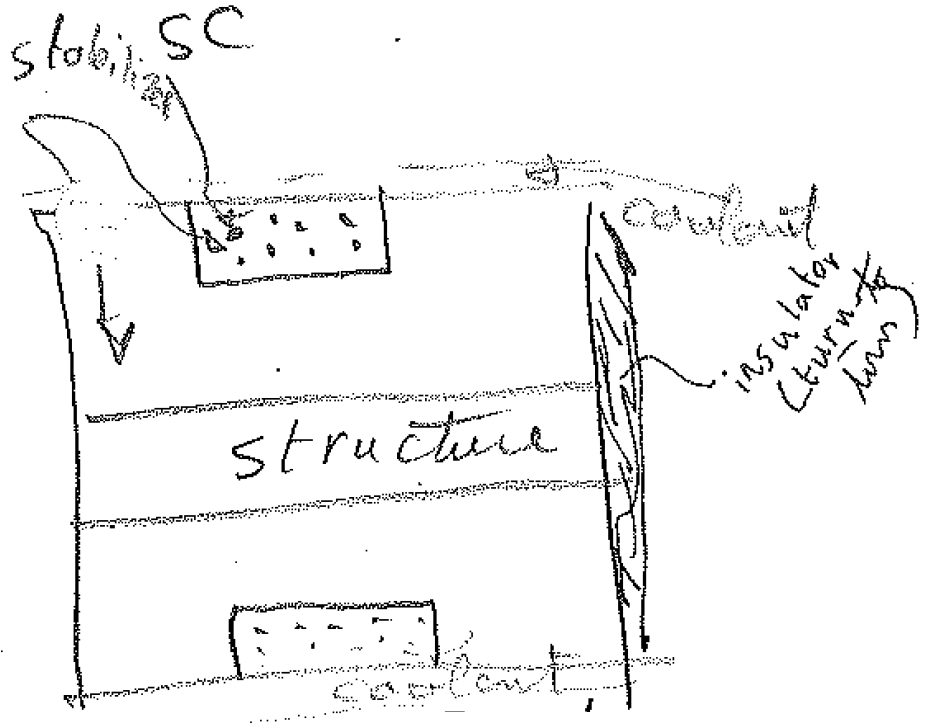 SC
stabilizer
coolant
insulator
(turn to
turn
structure
coolant